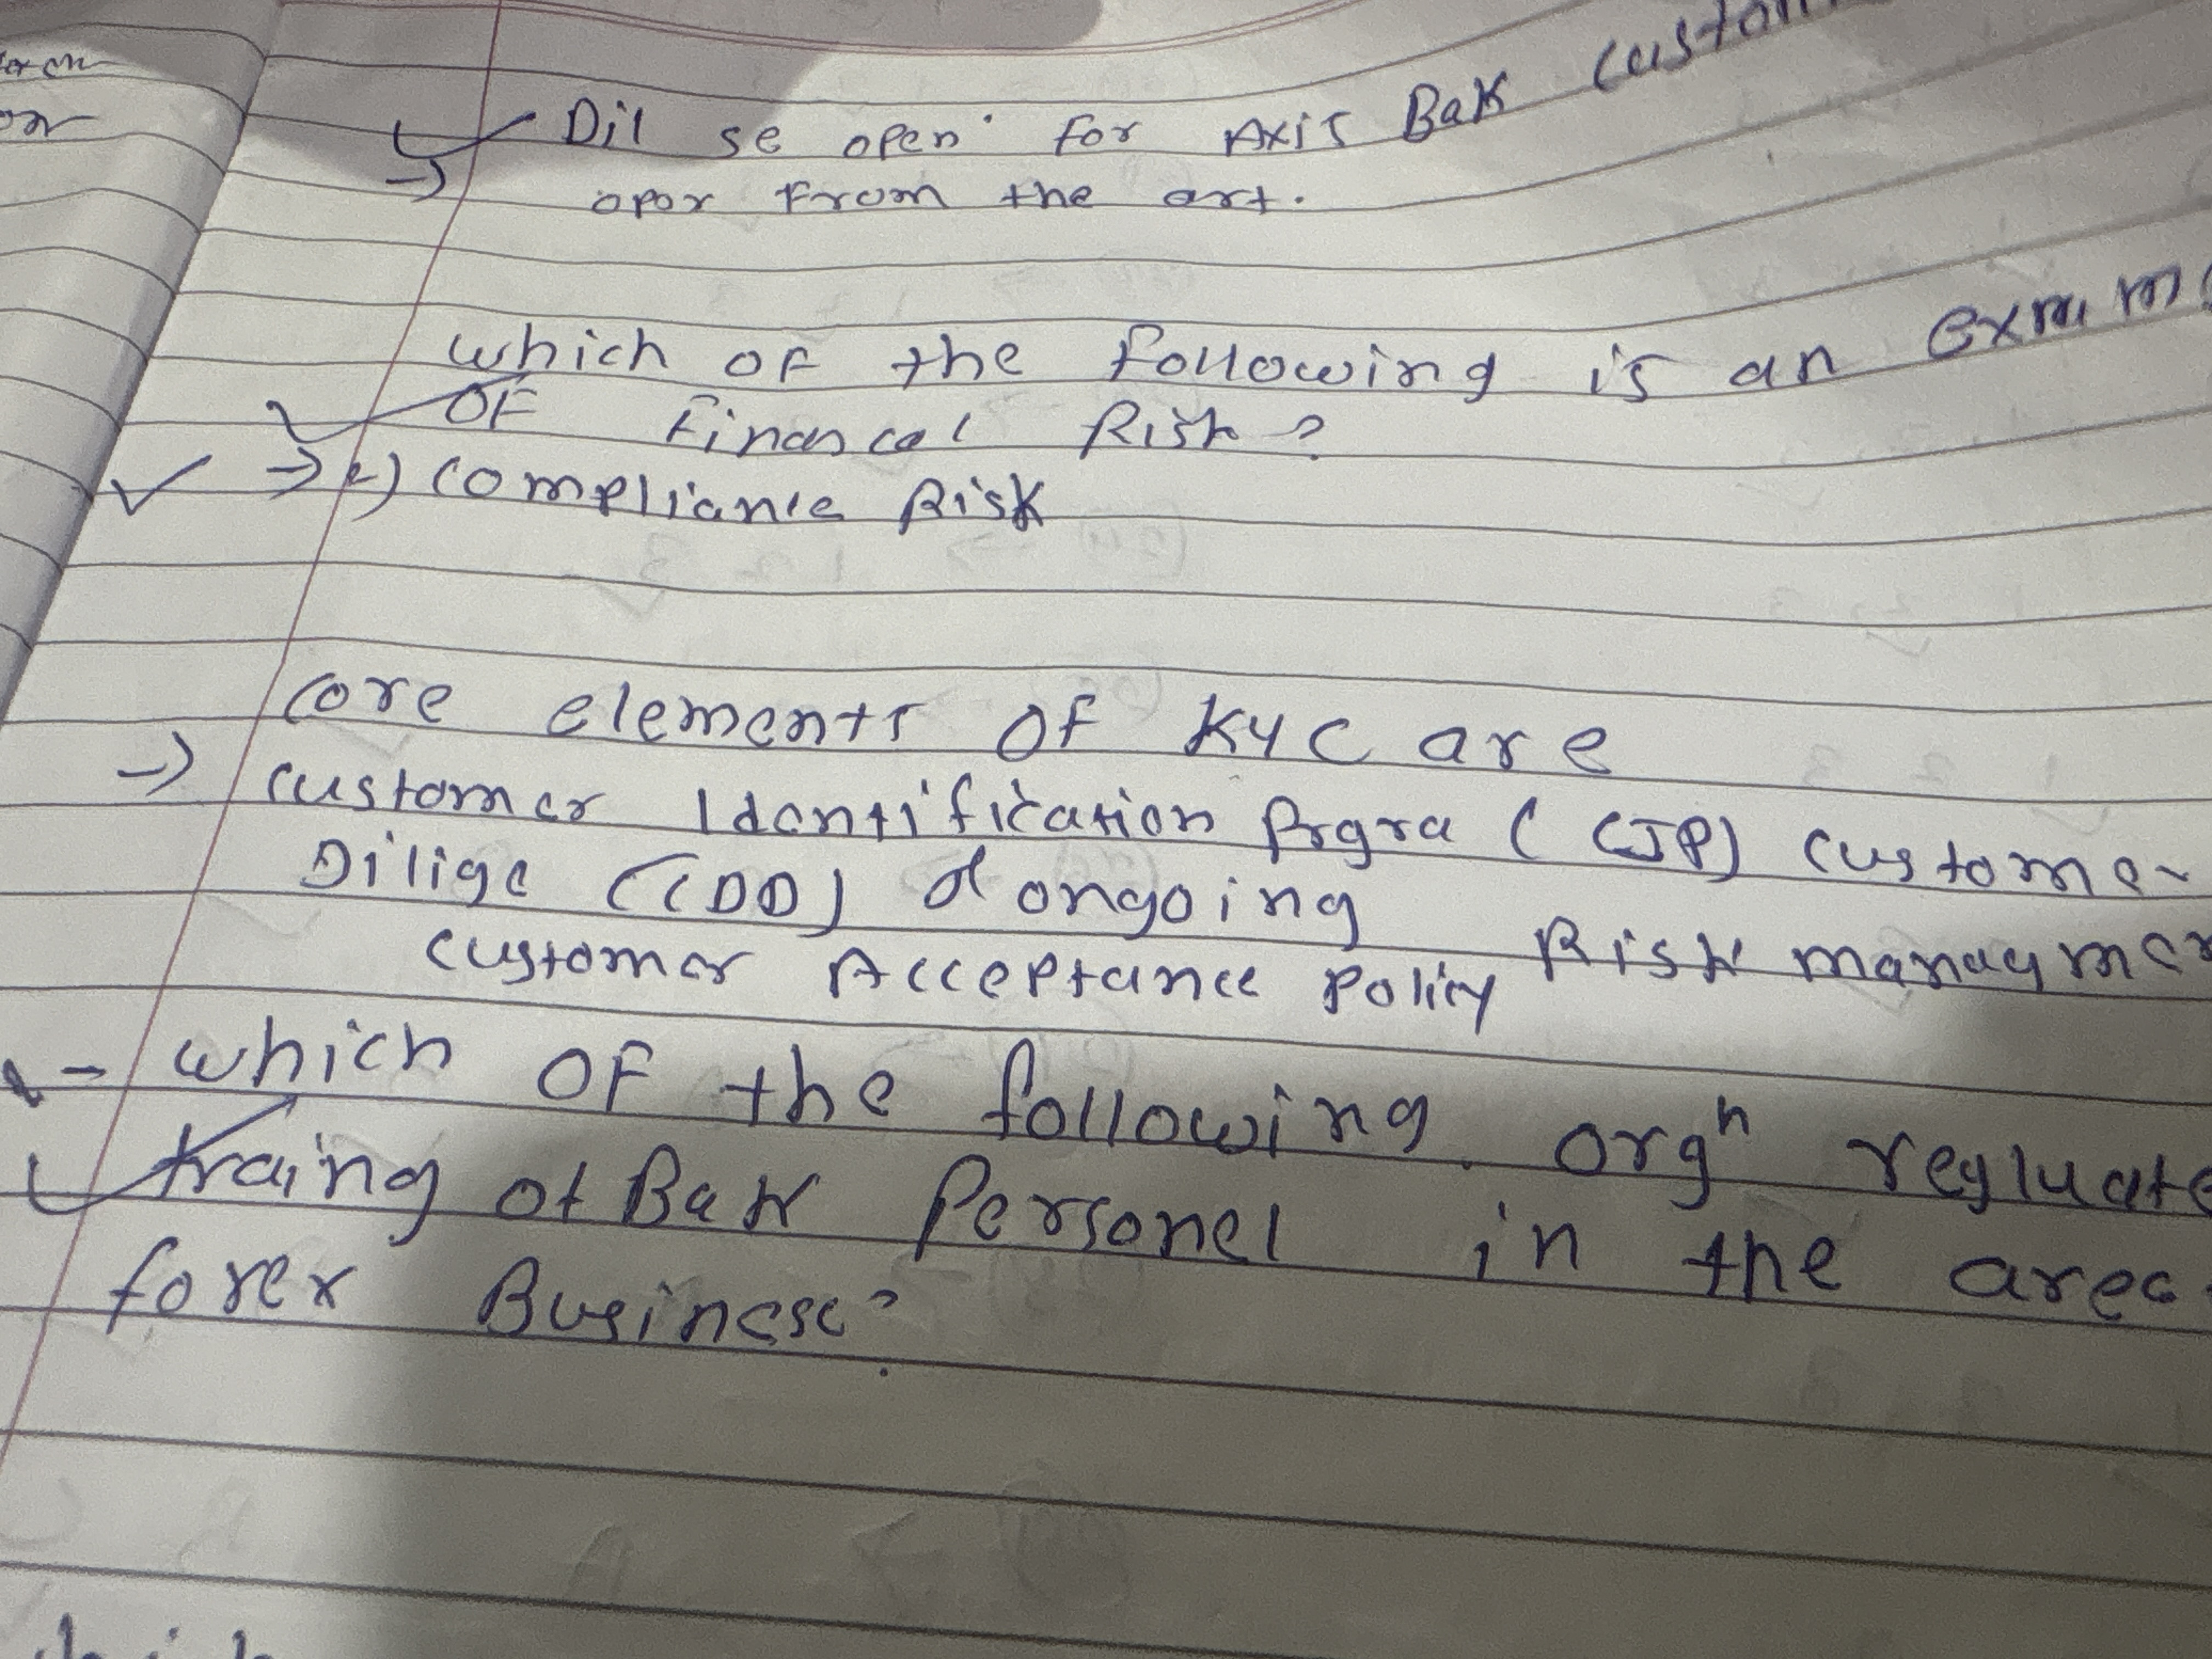 Dil se open' for Axis Bak
opor From the art.
which of the following is an
OF Financal Risk?
→ c) compliance Risk
core elements of KYC are
→ customer Idontification Prgra (CIP) customer
Dilige (CDD) & ongoing Risk managmen
customer Acceptance Policy
- which OF the following orgⁿ regluate
traing of Bak Personel in the area
forex Business?